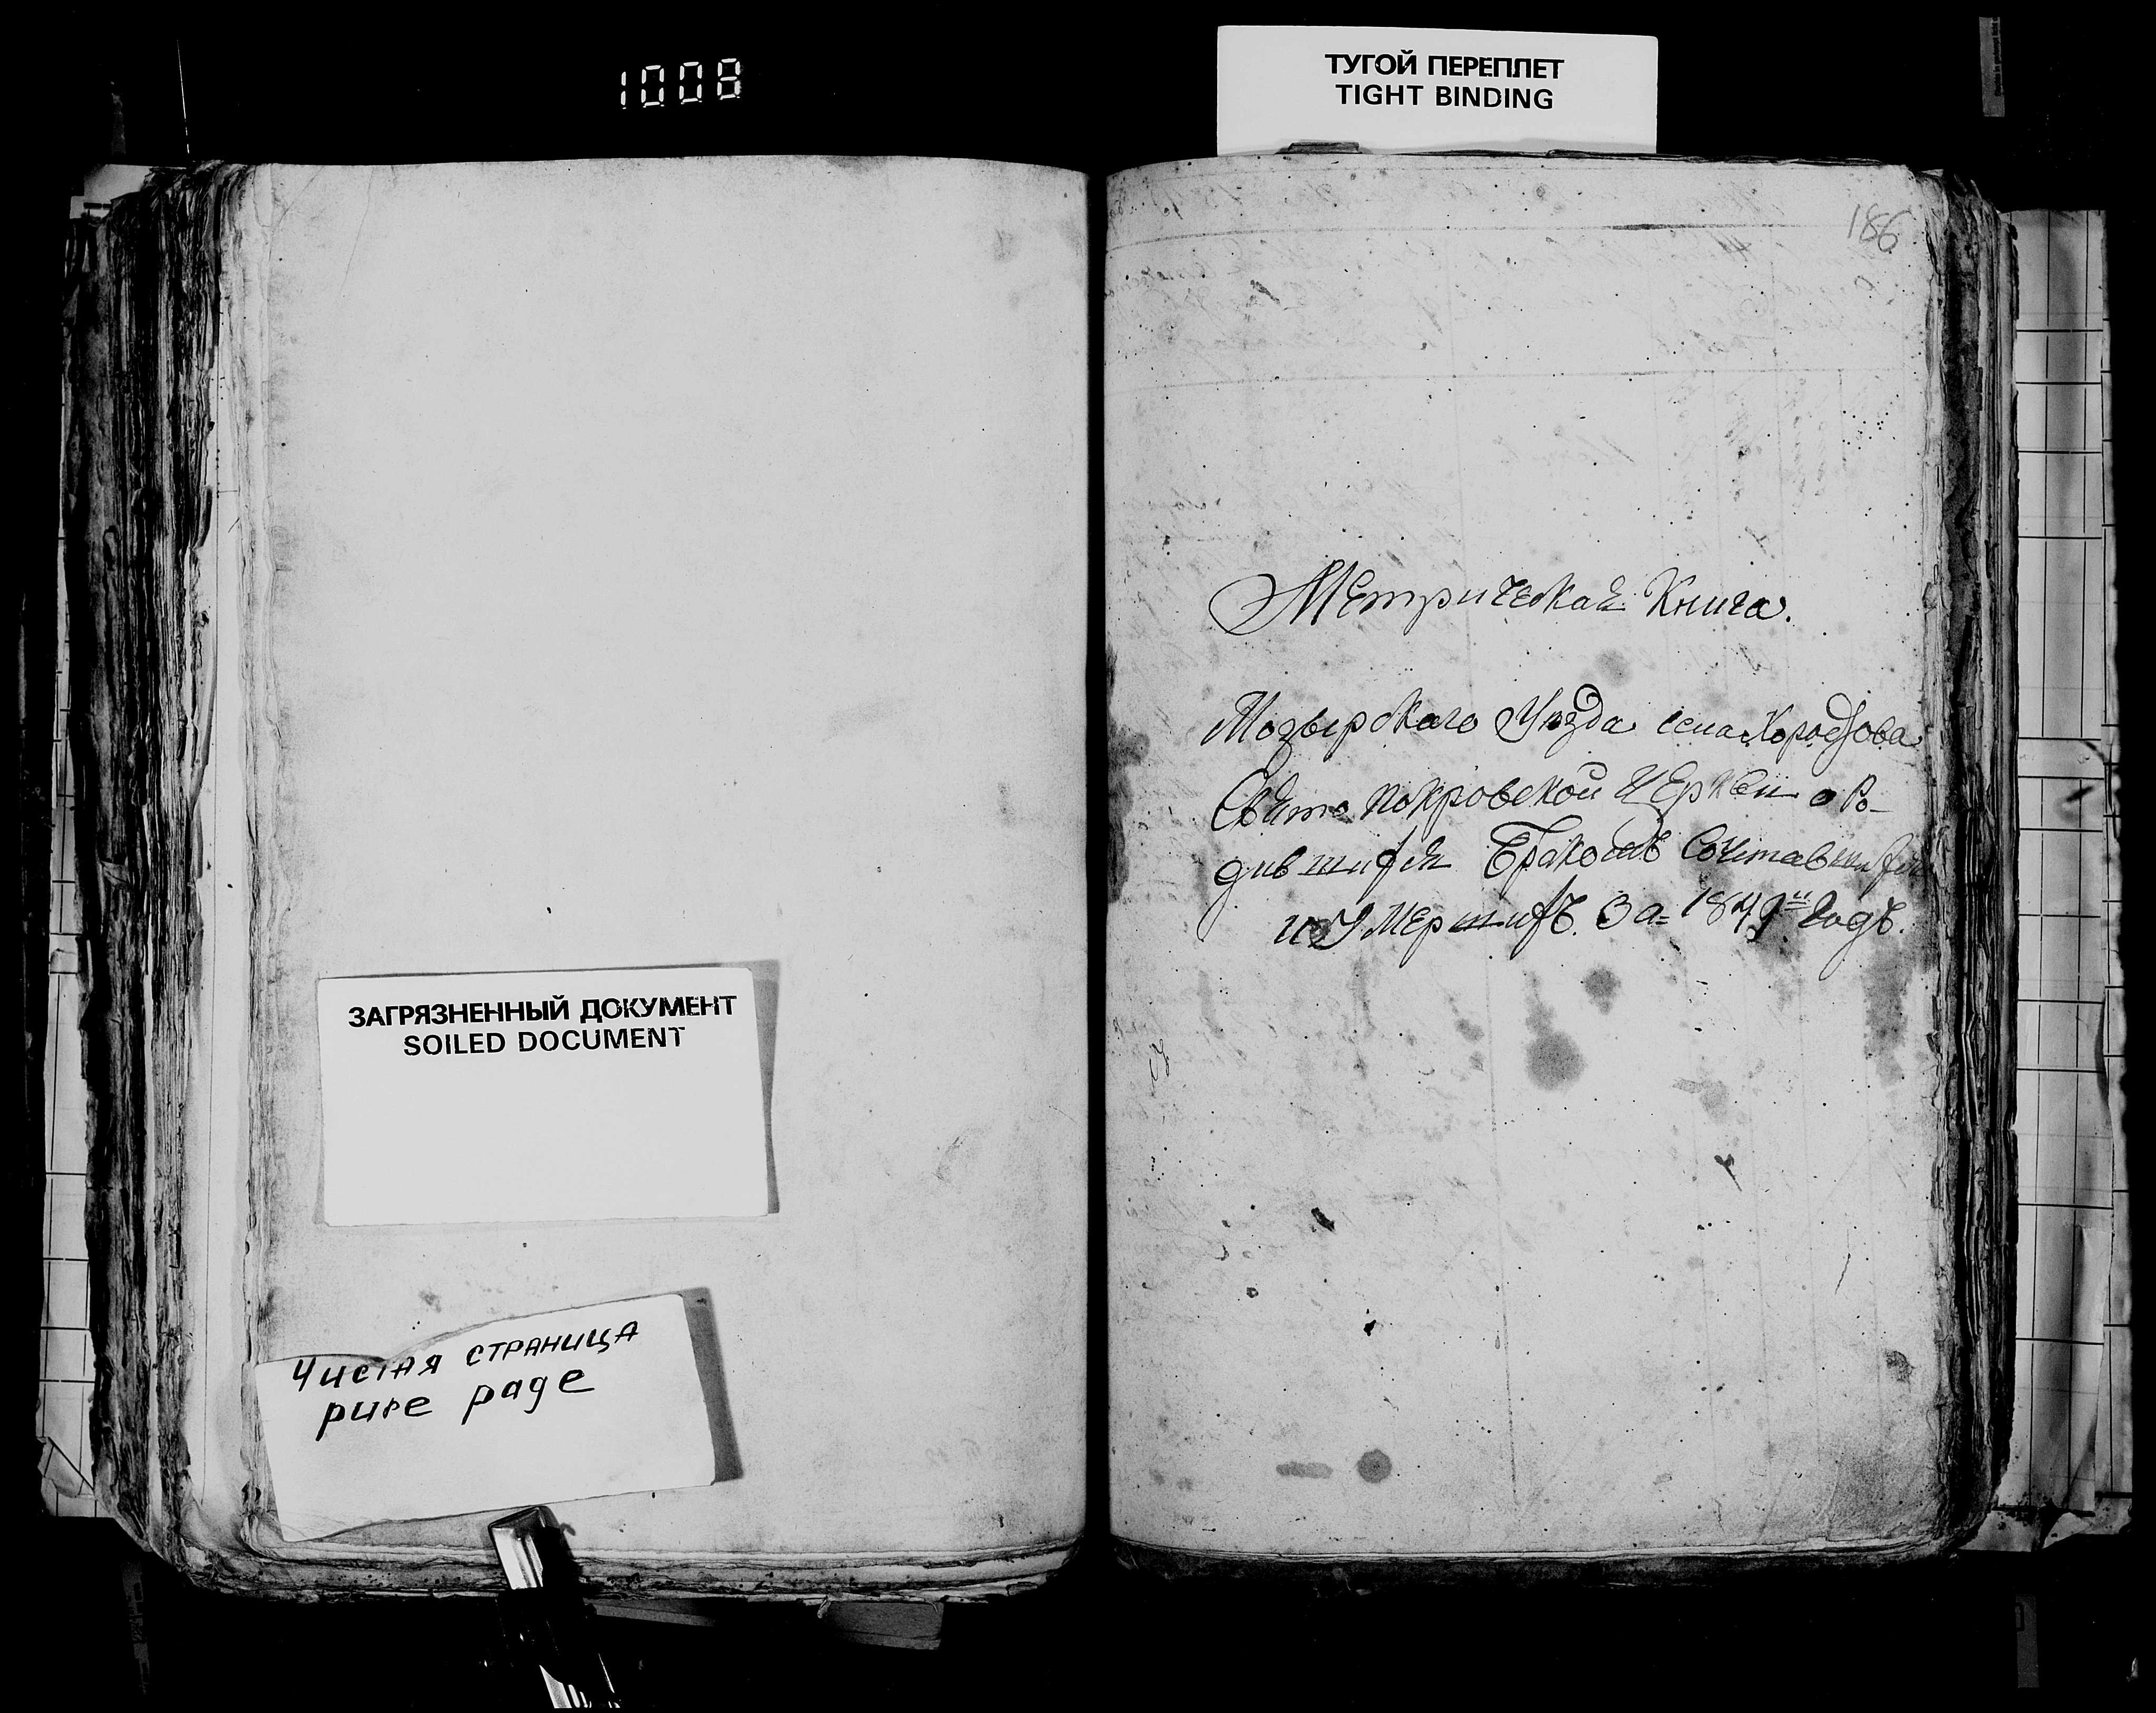 1008
ТУГОЙ ПЕРЕПЛЕТ
TIGHT BINDING
ЗАГРЯЗНЕННЫЙ ДОКУМЕНТ
SOILED DOCUMENT
Чистая СТРАНИЦА
pure page
186
Метрическая Книга.
Мозырскаго Уѣзда села
Свято Покровской Церкви о Ро-
дившихся Бракомъ Сочетавшихся
и Умершихъ. За 184 годъ.